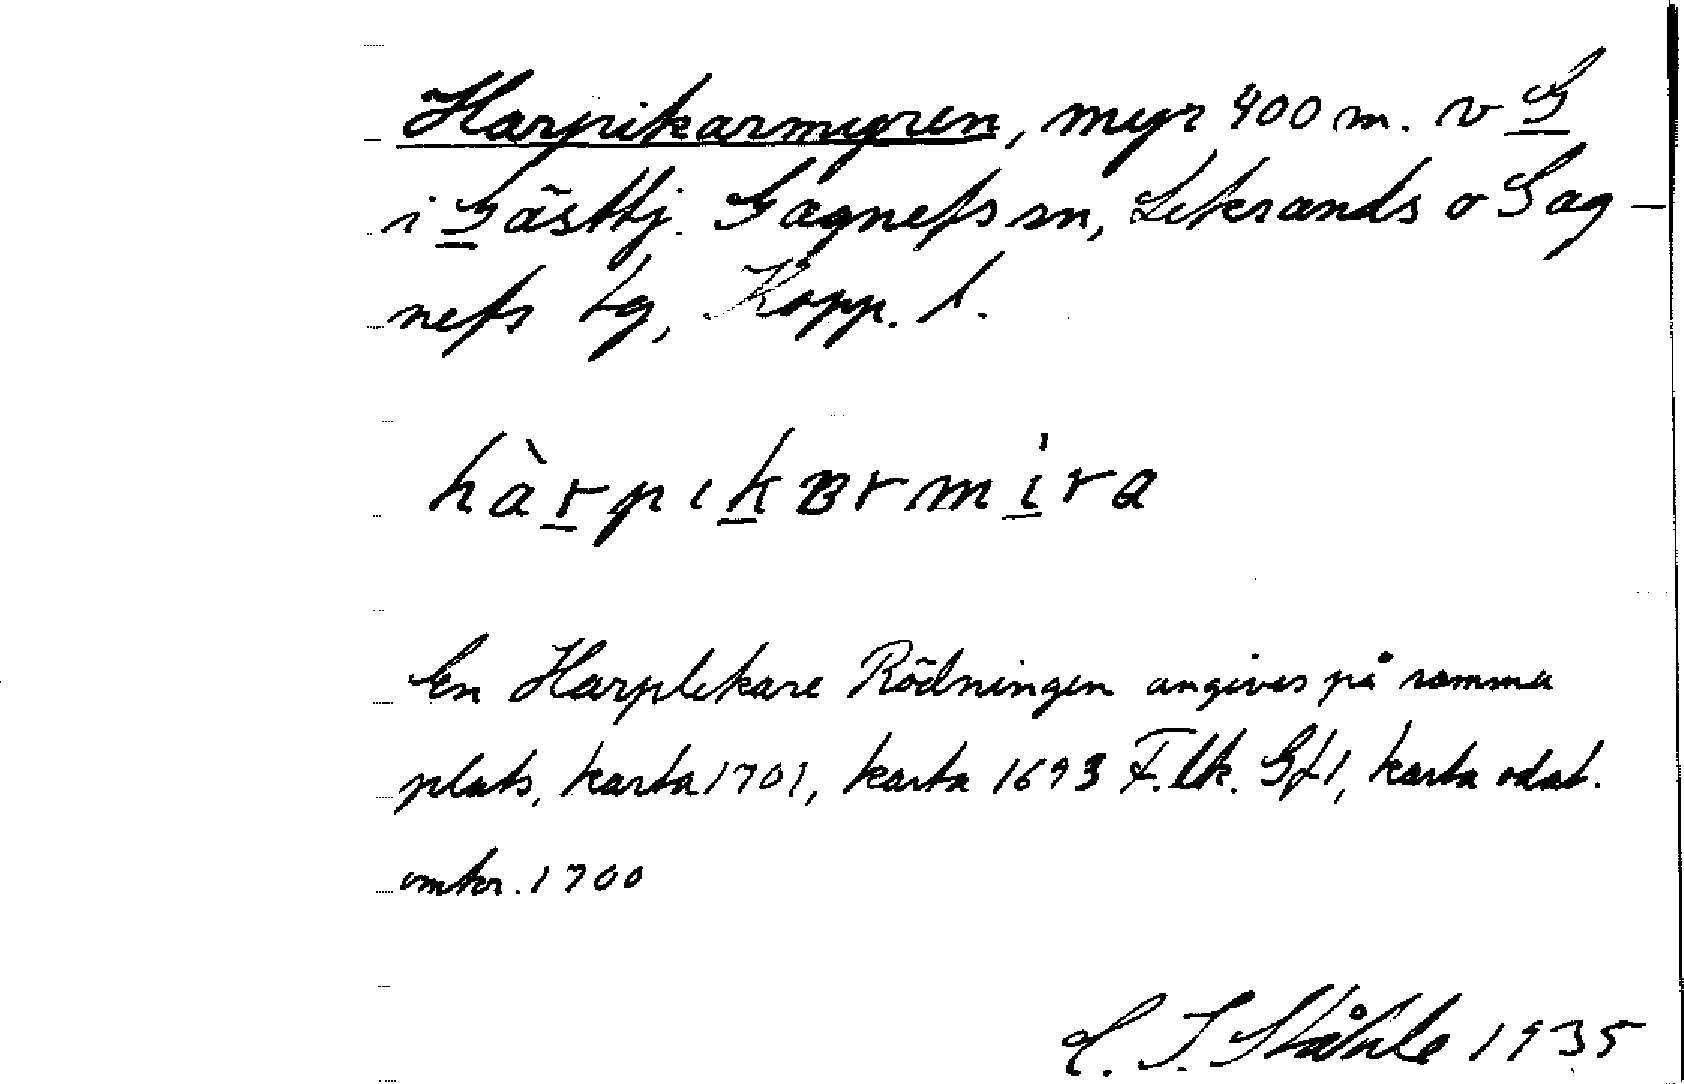 Harpikarmyren, myr 400 m. v G
i Gästtj. Gagnefs sn, Leksands o Gag-
nefs tg, Kopp. l.
hàrpıkɐrmìra
En Harplekare Rödningen angives på samma
plats, karta 1701, karta 1693 F.lk. Gf1, karta odat.
omkr. 1700
C. I. Ståhle 1935